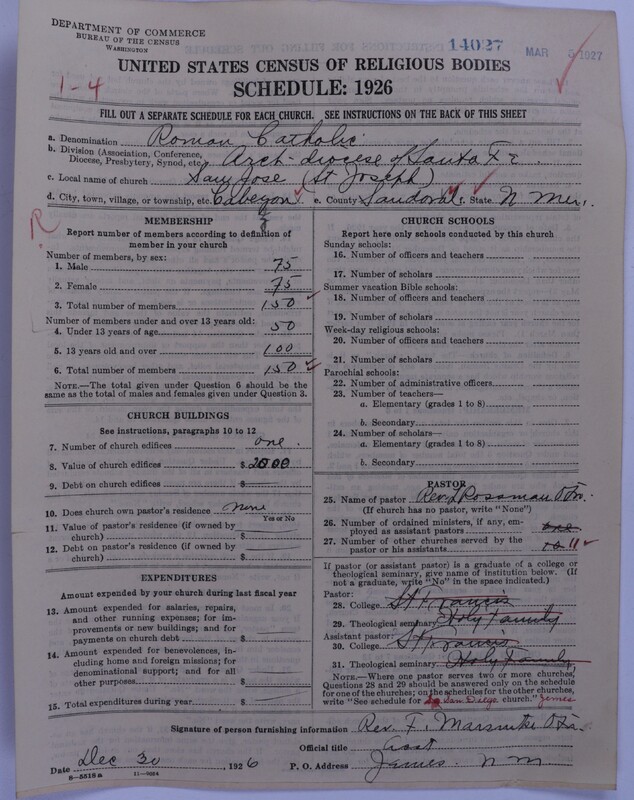 DEPARTMENT OF COMMERCE
BUREAU OF THE CENSUS
WASHINGTON
14027
MAR 5 1927
UNITED STATES CENSUS OF RELIGIOUS BODIES
SCHEDULE: 1926
1-4
FILL OUT A SEPARATE SCHEDULE FOR EACH CHURCH. SEE INSTRUCTIONS ON THE BACK OF THIS SHEET
a. Denomination Roman Catholic
b. Division (Association, Conference,
Diocese, Presbytery, Synod, etc.) Arch-diocese of Santa Fe
c. Local name of church San Jose (St Joseph)
d. City, town, village, or township, etc. Cabezon e. County Sandoval f. State N Mex.
R
MEMBERSHIP
Report number of members according to definition of
member in your church
Number of members, by sex:
1. Male 75
2. Female 75
3. Total number of members 150
Number of members under and over 13 years old:
4. Under 13 years of age 50
5. 13 years old and over 100
6. Total number of members 150
NOTE.—The total given under Question 6 should be the
same as the total of males and females given under Question 3.
CHURCH BUILDINGS
See instructions, paragraphs 10 to 12
7. Number of church edifices one
8. Value of church edifices $ 2000
9. Debt on church edifices $
10. Does church own pastor's residence none
Yes or No
11. Value of pastor's residence (if owned by
church) $
12. Debt on pastor's residence (if owned by
church) $
EXPENDITURES
Amount expended by your church during last fiscal year
13. Amount expended for salaries, repairs,
and other running expenses; for im-
provements or new buildings; and for
payments on church debt $
14. Amount expended for benevolences, in-
cluding home and foreign missions; for
denominational support; and for all
other purposes $
15. Total expenditures during year $
CHURCH SCHOOLS
Report here only schools conducted by this church
Sunday schools:
16. Number of officers and teachers
17. Number of scholars
Summer vacation Bible schools:
18. Number of officers and teachers
19. Number of scholars
Week-day religious schools:
20. Number of officers and teachers
21. Number of scholars
Parochial schools:
22. Number of administrative officers
23. Number of teachers—
a. Elementary (grades 1 to 8)
b. Secondary
24. Number of scholars—
a. Elementary (grades 1 to 8)
b. Secondary
PASTOR
25. Name of pastor Rev. Rossman
(If church has no pastor, write "None")
26. Number of ordained ministers, if any, em-
ployed as assistant pastors one
27. Number of other churches served by the
pastor or his assistants 10 11
If pastor (or assistant pastor) is a graduate of a college or
theological seminary, give name of institution below. (If
not a graduate, write "No" in the space indicated.)
Pastor:
28. College St Francis
29. Theological seminary Holy Family
Assistant pastor:
30. College St Francis
31. Theological seminary Holy Family
NOTE.—Where one pastor serves two or more churches,
Questions 28 and 29 should be answered only on the schedule
for one of the churches; on the schedules for the other churches,
write "See schedule for San Diego church." Jemes
Signature of person furnishing information Rev. F.
Official title Asst
Date Dec 30, 1926 P. O. Address James N M
8-5518a 11-9094